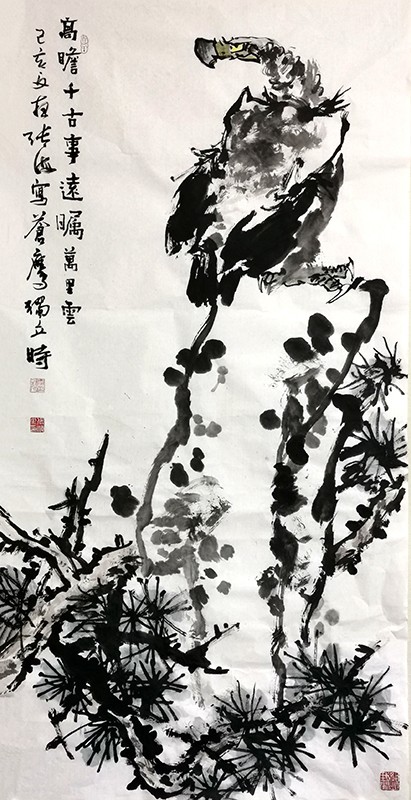 高瞻千古事遠矚萬里雲
己亥
寫蒼鷹獨立時